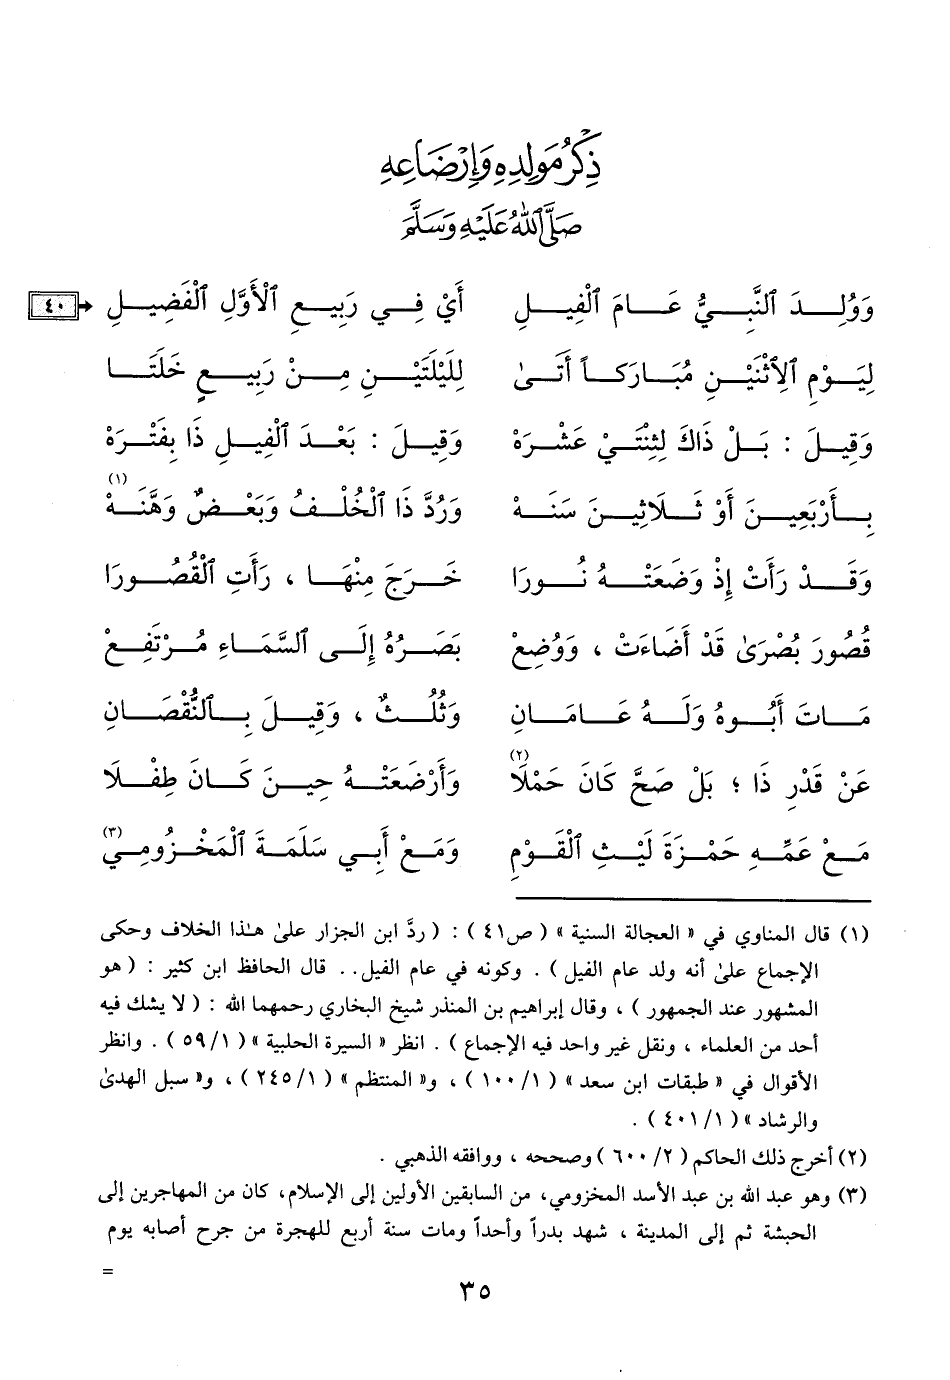 ذِكْرُ مَوْلِدِهِ وَإِرْضَاعِهِ
صَلَّى ٱللهُ عَلَيْهِ وَسَلَّمَ
وَوُلِدَ ٱلنَّبِيُّ عَامَ ٱلْفِيلِ أَيْ فِي رَبِيعِ ٱلْأَوَّلِ ٱلْفَضِيلِ ٤٠
لِيَوْمِ ٱلِاثْنَيْنِ مُبَارَكاً أَتَىٰ لِلَيْلَتَيْنِ مِنْ رَبِيعٍ خَلَتَا
وَقِيلَ : بَلْ ذَاكَ لِثِنْتَيْ عَشْرَهْ وَقِيلَ : بَعْدَ ٱلْفِيلِ ذَا بِفَتْرَهْ
بِأَرْبَعِينَ أَوْ ثَلَاثِينَ سَنَهْ وَرُدَّ ذَا ٱلْخُلْفُ وَبَعْضٌ وَهَّنَهْ (١)
وَقَدْ رَأَتْ إِذْ وَضَعَتْهُ نُورَا خَرَجَ مِنْهَا ، رَأَتِ ٱلْقُصُورَا
قُصُورَ بُصْرَىٰ قَدْ أَضَاءَتْ ، وَوُضِعْ بَصَرُهُ إِلَى ٱلسَّمَاءِ مُرْتَفِعْ
مَاتَ أَبُوهُ وَلَهُ عَامَانِ وَثُلُثٌ ، وَقِيلَ بِٱلنُّقْصَانِ
عَنْ قَدْرِ ذَا ؛ بَلْ صَحَّ كَانَ حَمْلَا (٢) وَأَرْضَعَتْهُ حِينَ كَانَ طِفْلَا
مَعْ عَمِّهِ حَمْزَةَ لَيْثِ ٱلْقَوْمِ وَمَعْ أَبِي سَلَمَةَ ٱلْمَخْزُومِيْ (٣)
(١) قال المناوي في « العجالة السنية » ( ص٤١ ) : ( ردَّ ابن الجزار علىٰ هـٰذا الخلاف وحكى
الإجماع علىٰ أنه ولد عام الفيل ) . وكونه في عام الفيل.. قال الحافظ ابن كثير : ( هو
المشهور عند الجمهور ) ، وقال إبراهيم بن المنذر شيخ البخاري رحمهما الله : ( لا يشك فيه
أحد من العلماء ، ونقل غير واحد فيه الإجماع ) . انظر « السيرة الحلبية » ( ١/ ٥٩ ) . وانظر
الأقوال في « طبقات ابن سعد » ( ١/ ١٠٠ ) ، و« المنتظم » ( ١/ ٢٤٥ ) ، و« سبل الهدىٰ
والرشاد » ( ١/ ٤٠١ ) .
(٢) أخرج ذلك الحاكم ( ٢/ ٦٠٠ ) وصححه ، ووافقه الذهبي .
(٣) وهو عبد الله بن عبد الأسد المخزومي، من السابقين الأولين إلى الإسلام، كان من المهاجرين إلى
الحبشة ثم إلى المدينة ، شهد بدراً وأحداً ومات سنة أربع للهجرة من جرح أصابه يوم
=
٣٥